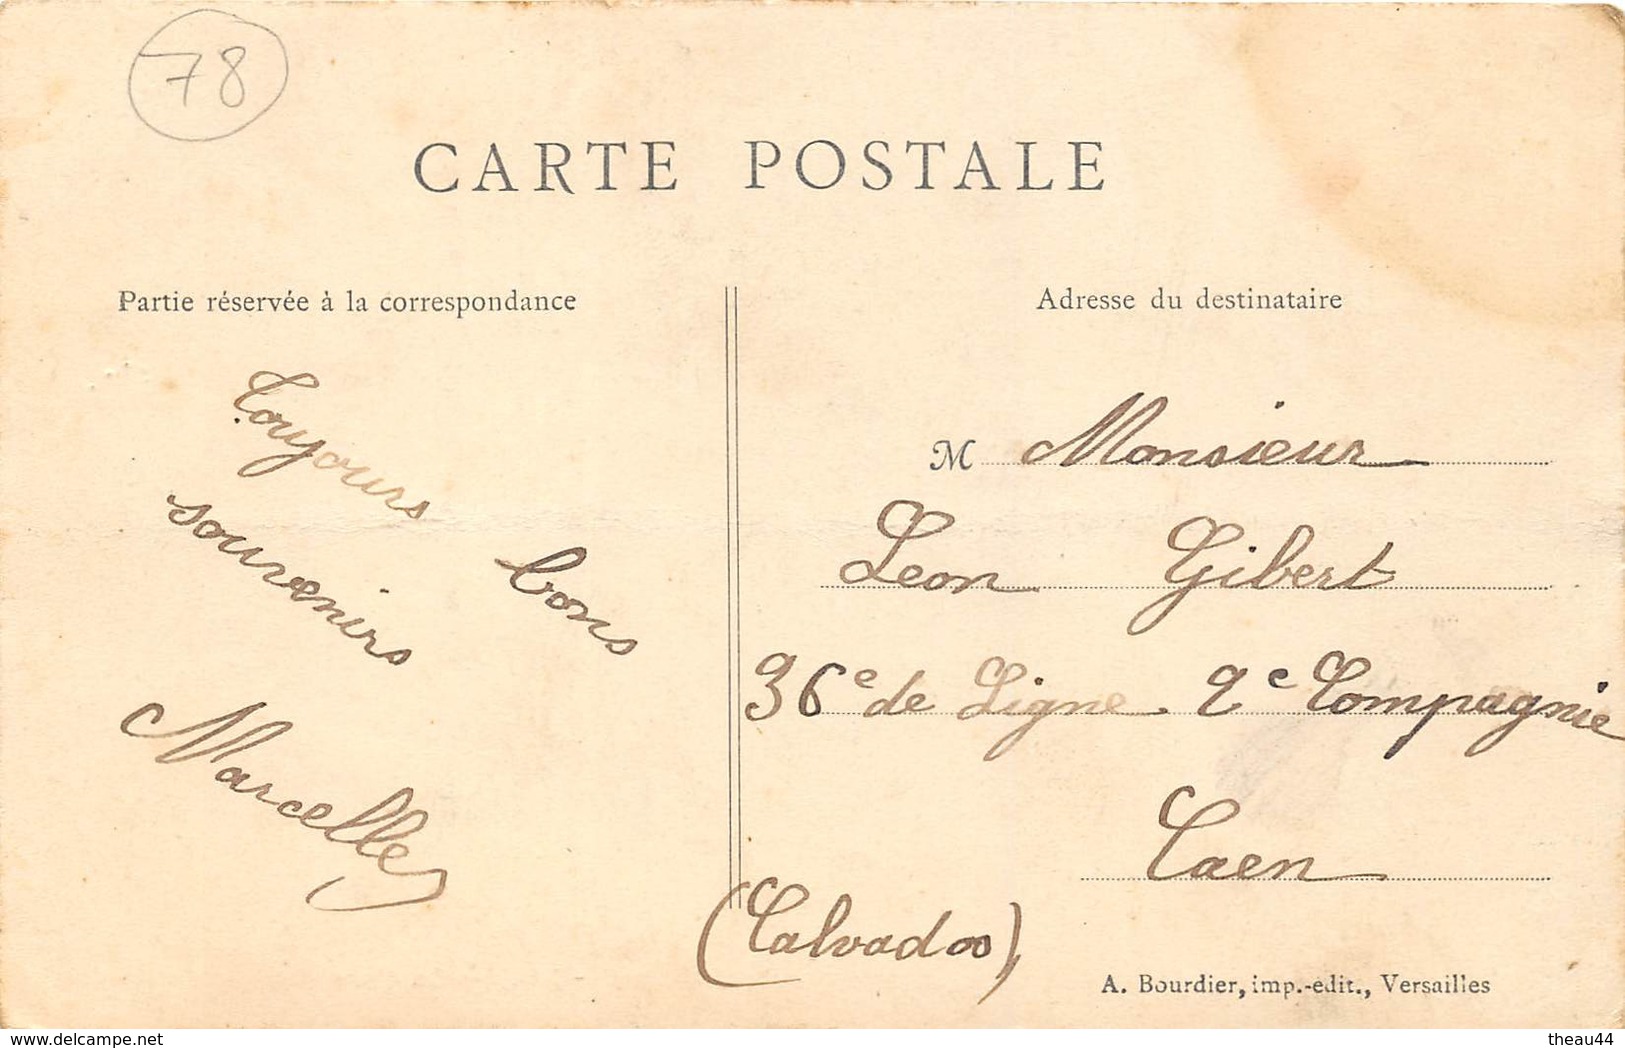 78
CARTE POSTALE
Partie réservée à la correspondance
Toujours bons
souvenirs
Marcelle
Adresse du destinataire
M Monsieur
Leon Gibert
36e de Ligne 2e Compagnie
Caen
(Calvados)
A. Bourdier, imp.-edit., Versailles
www.delcampe.net
theau44